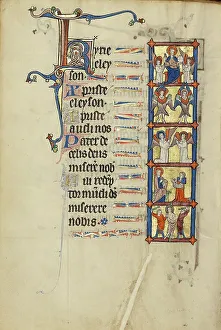 Kyrie
eley
son.
Xpiste
eleyson.
Xpiste
audi nos
Pater de
celis deus
miserе nob̄
redēp
tor mūdi d̄s
miserere
nobis.